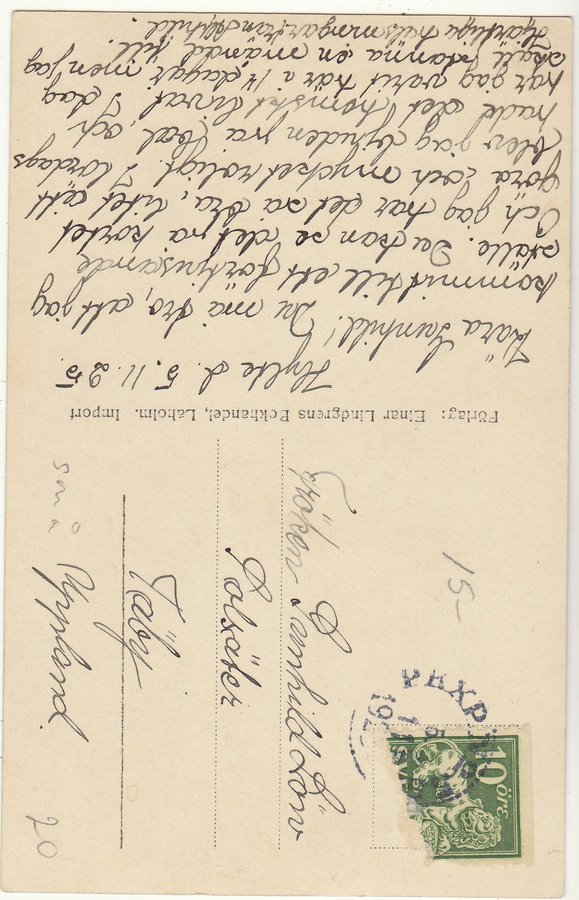 Hylte d. 5.11.25.
Kära Gunhild! Du må tro, att jag
kommit till ett förtjusande
ställe. Du kan se det på kortet
Och jag har det så bra, litet att
göra och mycket roligt. I lördags
blev jag bjuden på bal, och
hade det hemskt livat. I dag
har jag varit här a 14 dagar men jag
skall stanna en månad till.
Hjärtliga hälsningar från
Förlag: Einar Lindgrens Eckhandel, Laholm. Import
Fröken Gunhild Löv
Solsäter
Täby
Uppland.
små
15-
20
PKXP
5 11
19
10 ÖRE
SVE